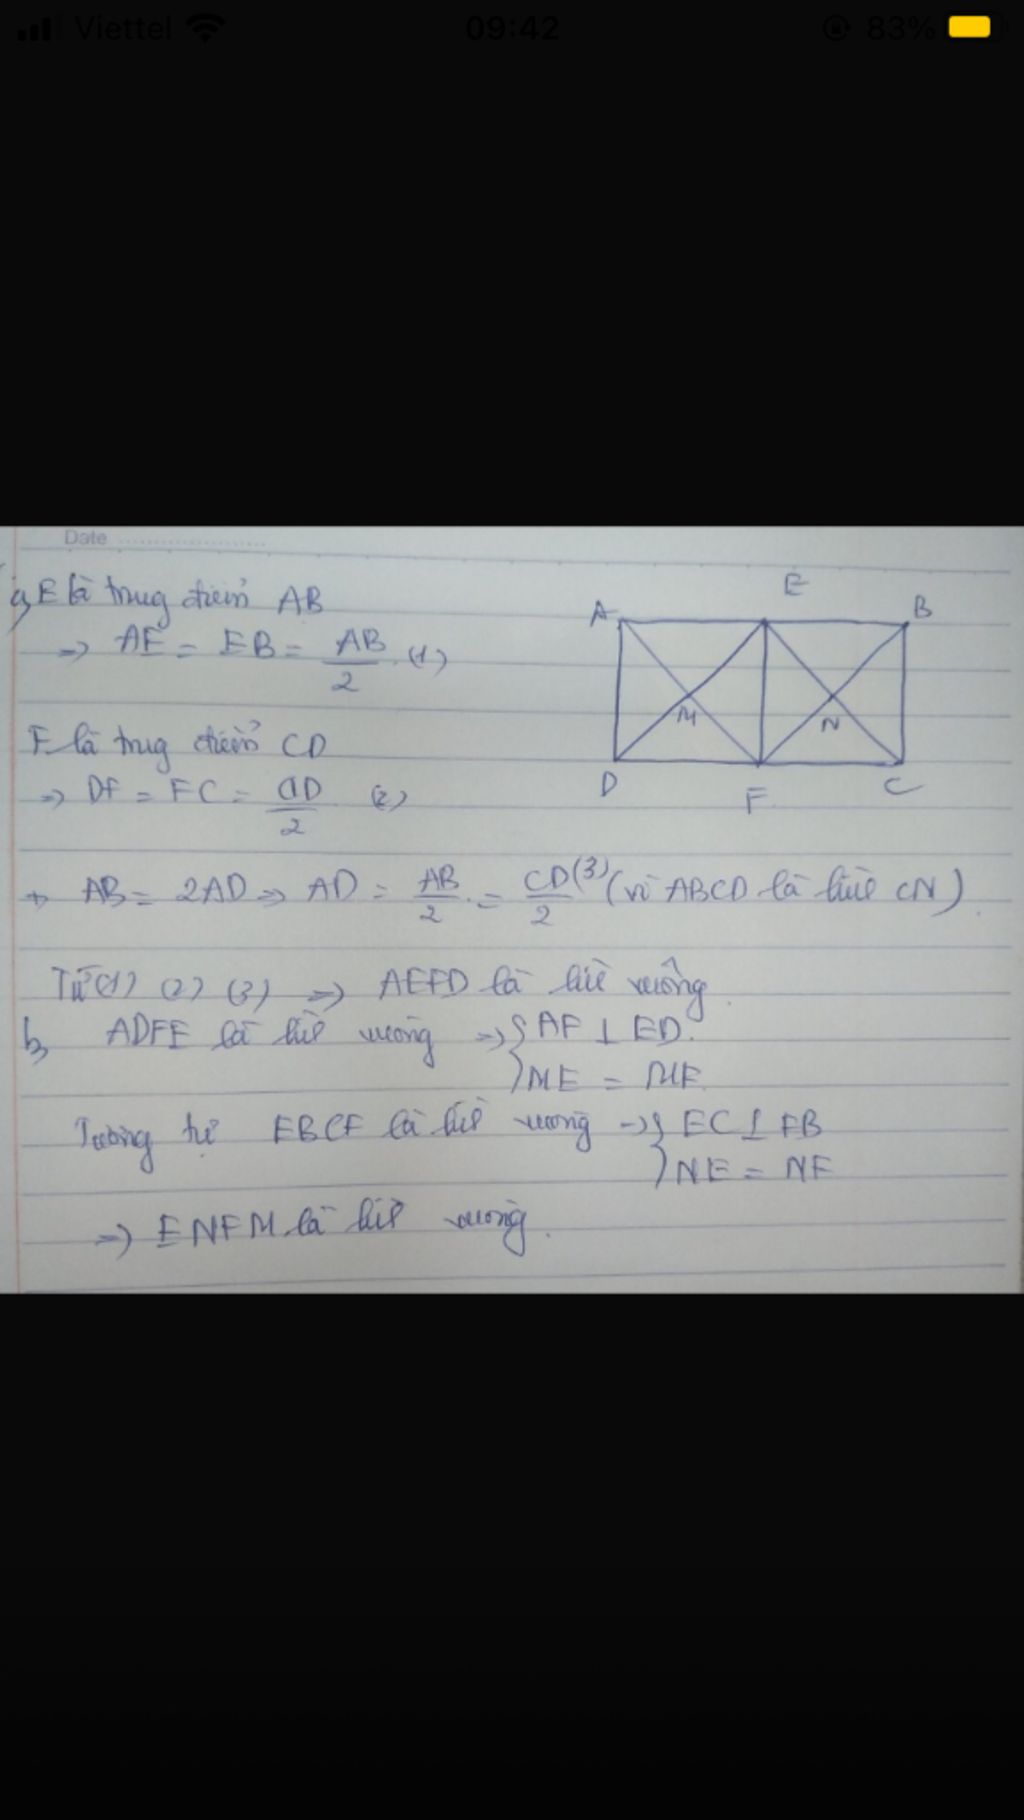 Viettel 09:42 83%
Date
a, E là trung điểm AB
=> AE = EB = AB/2 (1)
F là trung điểm CD
=> DF = FC = CD/2 (2)
+ AB = 2AD => AD = AB/2 = CD/2 (3) (vì ABCD là hình CN)
Từ (1) (2) (3) => AEFD là hình vuông
b, ADFE là hình vuông => { AF ⊥ ED.
ME = MF
Tương tự EBCF là hình vuông => { EC ⊥ FB
NE = NF
=> ENFM là hình vuông.
A E B
M N
D F C